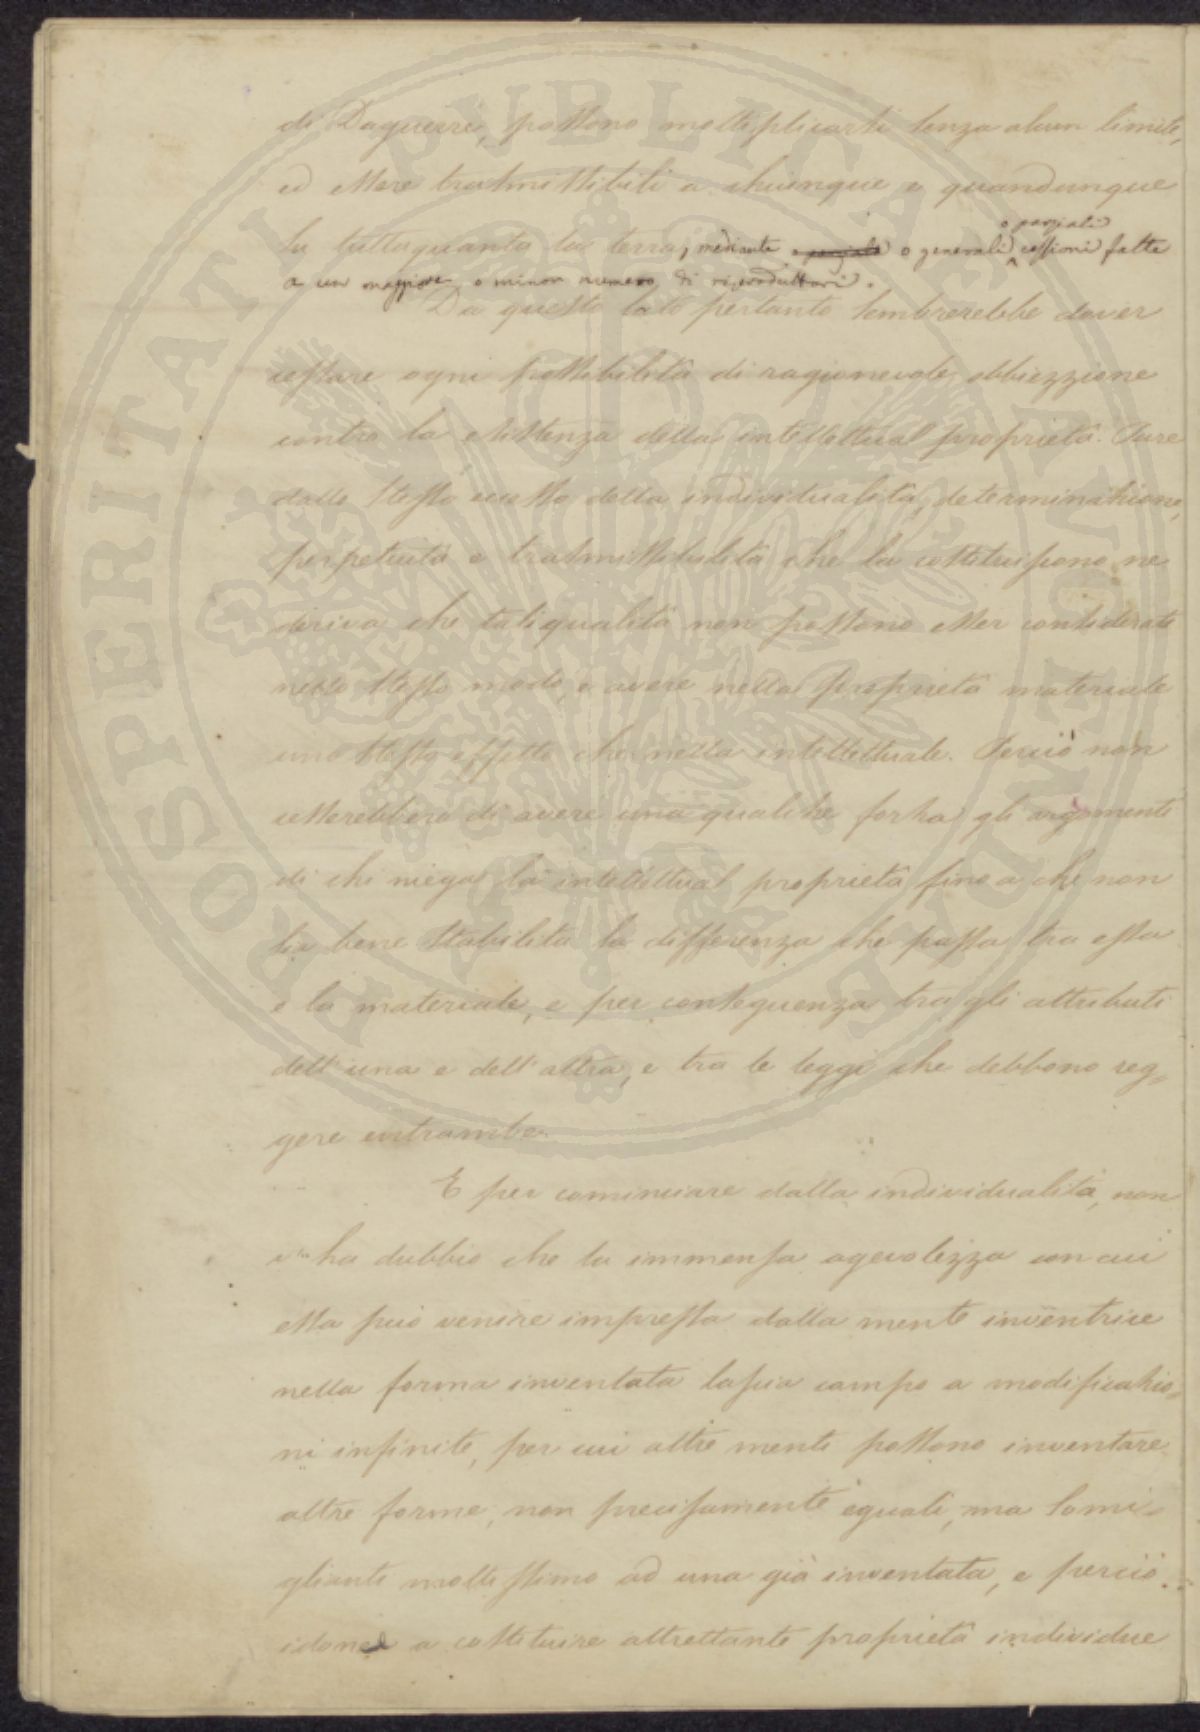 di Daguerre, possono moltiplicarsi senza alcun limite,
ed essere trasmissibili a chiunque e quandunque
su tuttaquanta la terra, mediante o parziali o generali o parziali cessioni fatte
a un maggiore o minor numero di riproduttori.
Da questo lato pertanto sembrerebbe dover
cessare ogni possibilità di ragionevole obbiezzione
contro la esistenza della intellettual proprietà. Pure
dallo stesso della individualità, determinazione,
perpetuità e trasmissibilità che la costituiscono ne
deriva che tali qualità non possono esser considerate
nello stesso modo, e avere nella proprietà materiale
uno stesso effetto che nella intellettuale. Perciò non
cesserebbero di avere una qualche forza gli argomenti
di chi niega la intellettual proprietà fino a che non
sia bene stabilita la differenza che passa tra essa
e la materiale, e per conseguenza tra gli attributi
dell'una e dell'altra, e tra le leggi che debbono reg-
gere entrambe.
E per cominciare dalla individualità, non
v'ha dubbio che la immensa agevolezza con cui
essa può venire impressa dalla mente inventrice
nella forma inventata lascia campo a modificazio-
ni infinite, per cui altre menti possono inventare
altre forme, non precisamente eguali, ma somi-
glianti moltissimo ad una già inventata, e perciò
idonee a costituire altrettante proprietà individue
PROSPERITATI PVBLICAE AVGENDAE